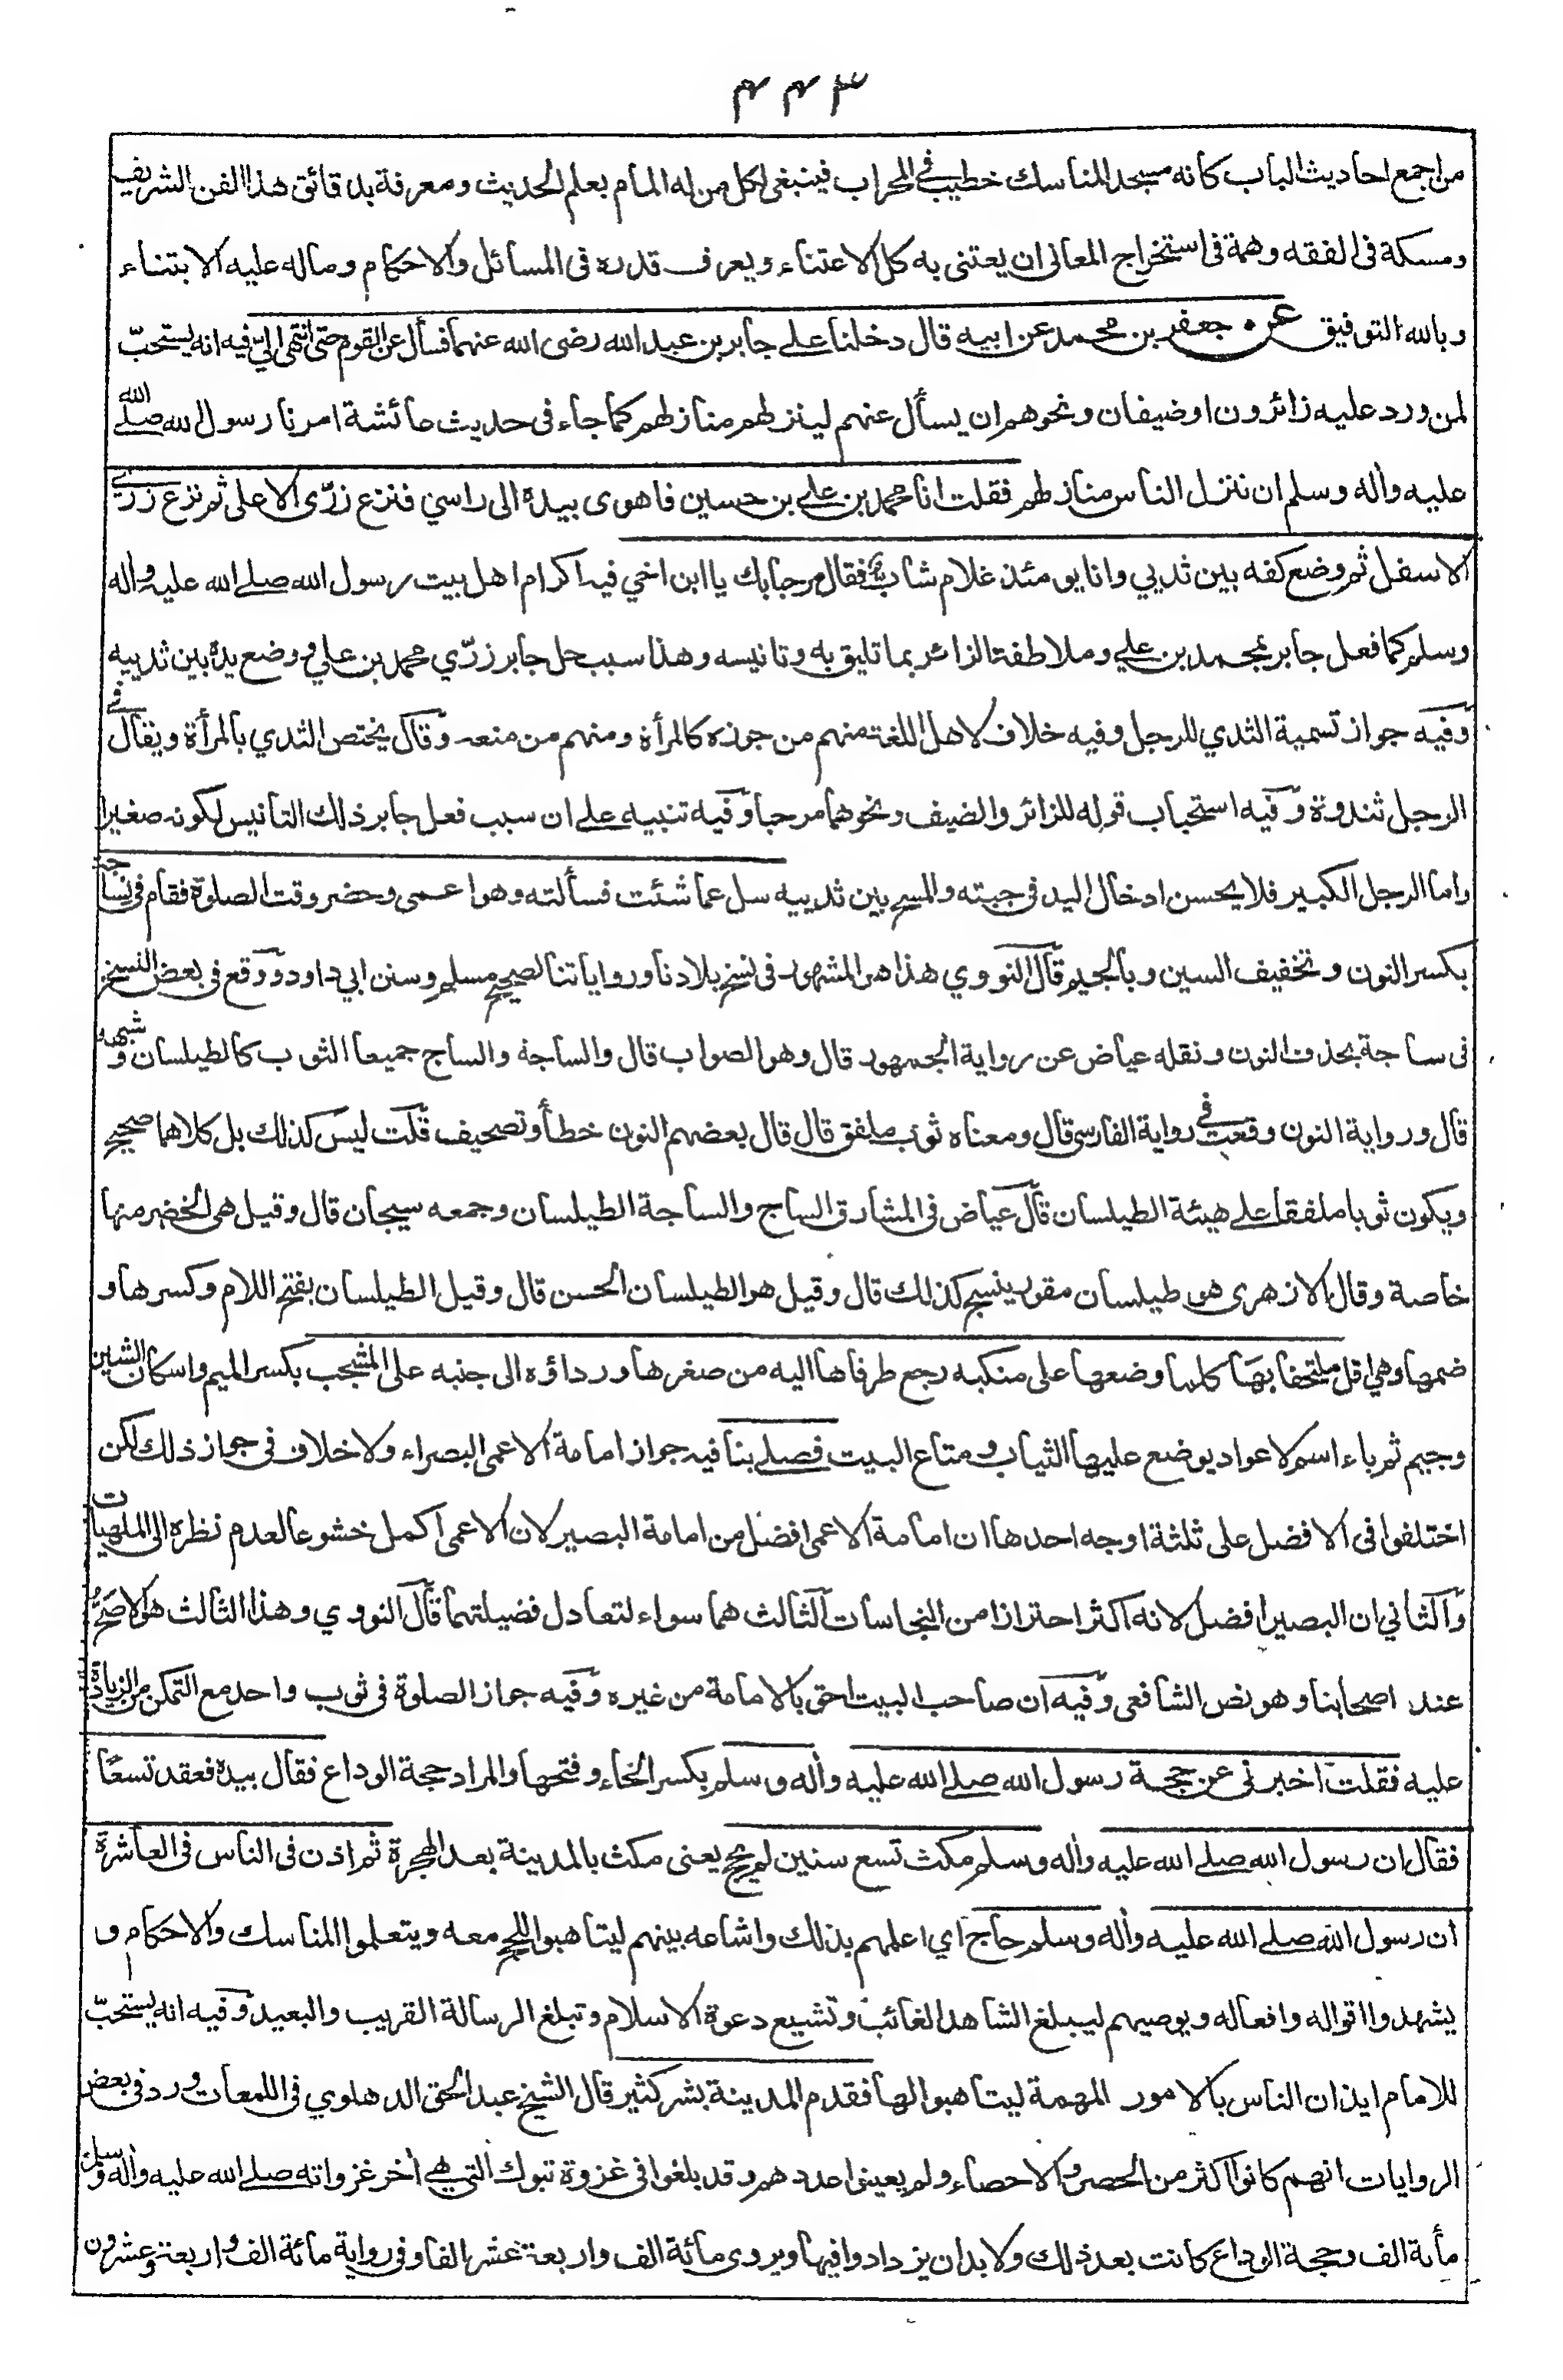 ۴۴۳
من اجمع احاديث الباب كانه مسجد للمناسك خطيب في المحراب فينبغي لكل من له المام بعلم الحديث ومعرفة بدقائق هذا الفن الشريف
ومسكة فى الفقه وهمة فى استخراج المعانى ان يعتنى به كل الاعتناء ويعرف قدره فى المسائل والاحكام وماله عليه الابتناء
وبالله التوفيق عن جعفر بن محمد عن ابيه قال دخلنا علے جابر بن عبد الله رضى الله عنهما فسأل عن القوم حتى انتهى الي فيه انه يستحبّ
لمن ورد عليه زائرون او ضيفان ونحوهم ان يسأل عنهم لينزلهم منازلهم كما جاء فى حديث عائشة امرنا رسول الله صلے الله
عليه واله وسلم ان ننزل الناس منازلهم فقلت انا محمد بن علے بن حسين فاهوى بيده الى راسي فنزع زرّى الاعلى ثم نزع زرّي
الاسفل ثم وضع كفه بين ثديي وانا يومئذ غلام شاب فقال مرحبا بك يا ابن اخي فيه اكرام اهل بيت رسول الله صلے الله عليه واله
وسلم كما فعل جابر بمحمد بن علي وملاطفة الزائر بما تليق به وتانيسه وهذا سبب حل جابر زرّي محمد بن علي ووضع يده بين ثدييه
وفيه جواز تسمية الثدي للرجل وفيه خلاف لاهل اللغة منهم من جوزه كالمرأة ومنهم من منعه وقال يختص الثدي بالمرأة ويقال في
الرجل ثندوة وفيه استحباب قوله للزائر والضيف ونحوهما مرحبا وفيه تنبيه علے ان سبب فعل جابر ذلك التانيس لكونه صغيرا
واما الرجل الكبير فلا يحسن ادخال اليد فى جبته والمسح بين ثدييه سل عما شئت فسألته وهو اعمى وحضر وقت الصلوة فقام فى نساجة
بكسر النون وتخفيف السين وبالجيم قال النووي هذا هو المشهور فى نسخ بلادنا ورواياتنا لصحيح مسلم وسنن ابي داود ووقع فى بعض النسخ
فى ساجة بحذف النون ونقله عياض عن رواية الجمهور قال وهو الصواب قال والساجة والساج جميعا الثوب كالطيلسان وشبهه
قال ورواية النون وقعت في رواية الفارسى قال ومعناه ثوب ملفق قال قال بعضهم النون خطأ وتصحيف قلت ليس كذلك بل كلاهما صحيح
ويكون ثوبا ملفقا علے هيئة الطيلسان قال عياض فى المشارق الساج والساجة الطيلسان وجمعه سيجان قال وقيل هى الخضر منها
خاصة وقال الازهرى هو طيلسان مقور ينسج كذلك قال وقيل هو الطيلسان الحسن قال وقيل الطيلسان بفتح اللام وكسرها و
ضمها وهي اقل ملتحفا بها كلما وضعها على منكبه رجع طرفاها اليه من صغرها ورداؤه الى جنبه على المشجب بكسر الميم واسكان الشين
وجيم ثم باء اسم لاعواد يوضع عليها الثياب ومتاع البيت فصلے بنا فيه جواز امامة الاعمى البصراء ولا خلاف فى جواز ذلك لكن
اختلفوا فى الافضل على ثلثة اوجه احدها ان امامة الاعمى افضل من امامة البصير لان الاعمى اكمل خشوعا لعدم نظره الى الملهيات
والثاني ان البصير افضل لانه اكثر احترازا من النجاسات الثالث هما سواء لتعادل فضيلتهما قال النووي وهذا الثالث هو الاصح
عند اصحابنا وهو نص الشافعى وفيه ان صاحب البيت احق بالامامة من غيره وفيه جواز الصلوة فى ثوب واحد مع التمكن من الزيادة
عليه فقلت اخبرنى عن حجة رسول الله صلے الله عليه واله وسلم بكسر الحاء وفتحها والمراد حجة الوداع فقال بيده فعقد تسعًا
فقال ان رسول الله صلے الله عليه واله وسلم مكث تسع سنين لم يحج يعنى مكث بالمدينة بعد الهجرة ثم اذن فى الناس فى العاشرة
ان رسول الله صلے الله عليه واله وسلم حاج اي اعلمهم بذلك واشاعه بينهم ليتاهبوا للحج معه ويتعلموا المناسك والاحكام و
يشهدوا اقواله وافعاله ويوصيهم ليبلغ الشاهد الغائب وتشيع دعوة الاسلام وتبلغ الرسالة القريب والبعيد وفيه انه يستحبّ
للامام ايذان الناس بالامور المهمة ليتاهبوا لها فقدم المدينة بشر كثير قال الشيخ عبد الحق الدهلوي فى اللمعات ورد فى بعض
الروايات انهم كانوا اكثر من الحصر والاحصاء ولم يعينوا عددهم وقد بلغوا فى غزوة تبوك التي هي اخر غزواته صلے الله عليه واله وسلم
مأئة الف وحجة الوداع كانت بعد ذلك ولا بد ان يزدادوا فيها ويروى مائة الف واربعة عشر الفا وفى رواية مائة الف واربعة وعشرون